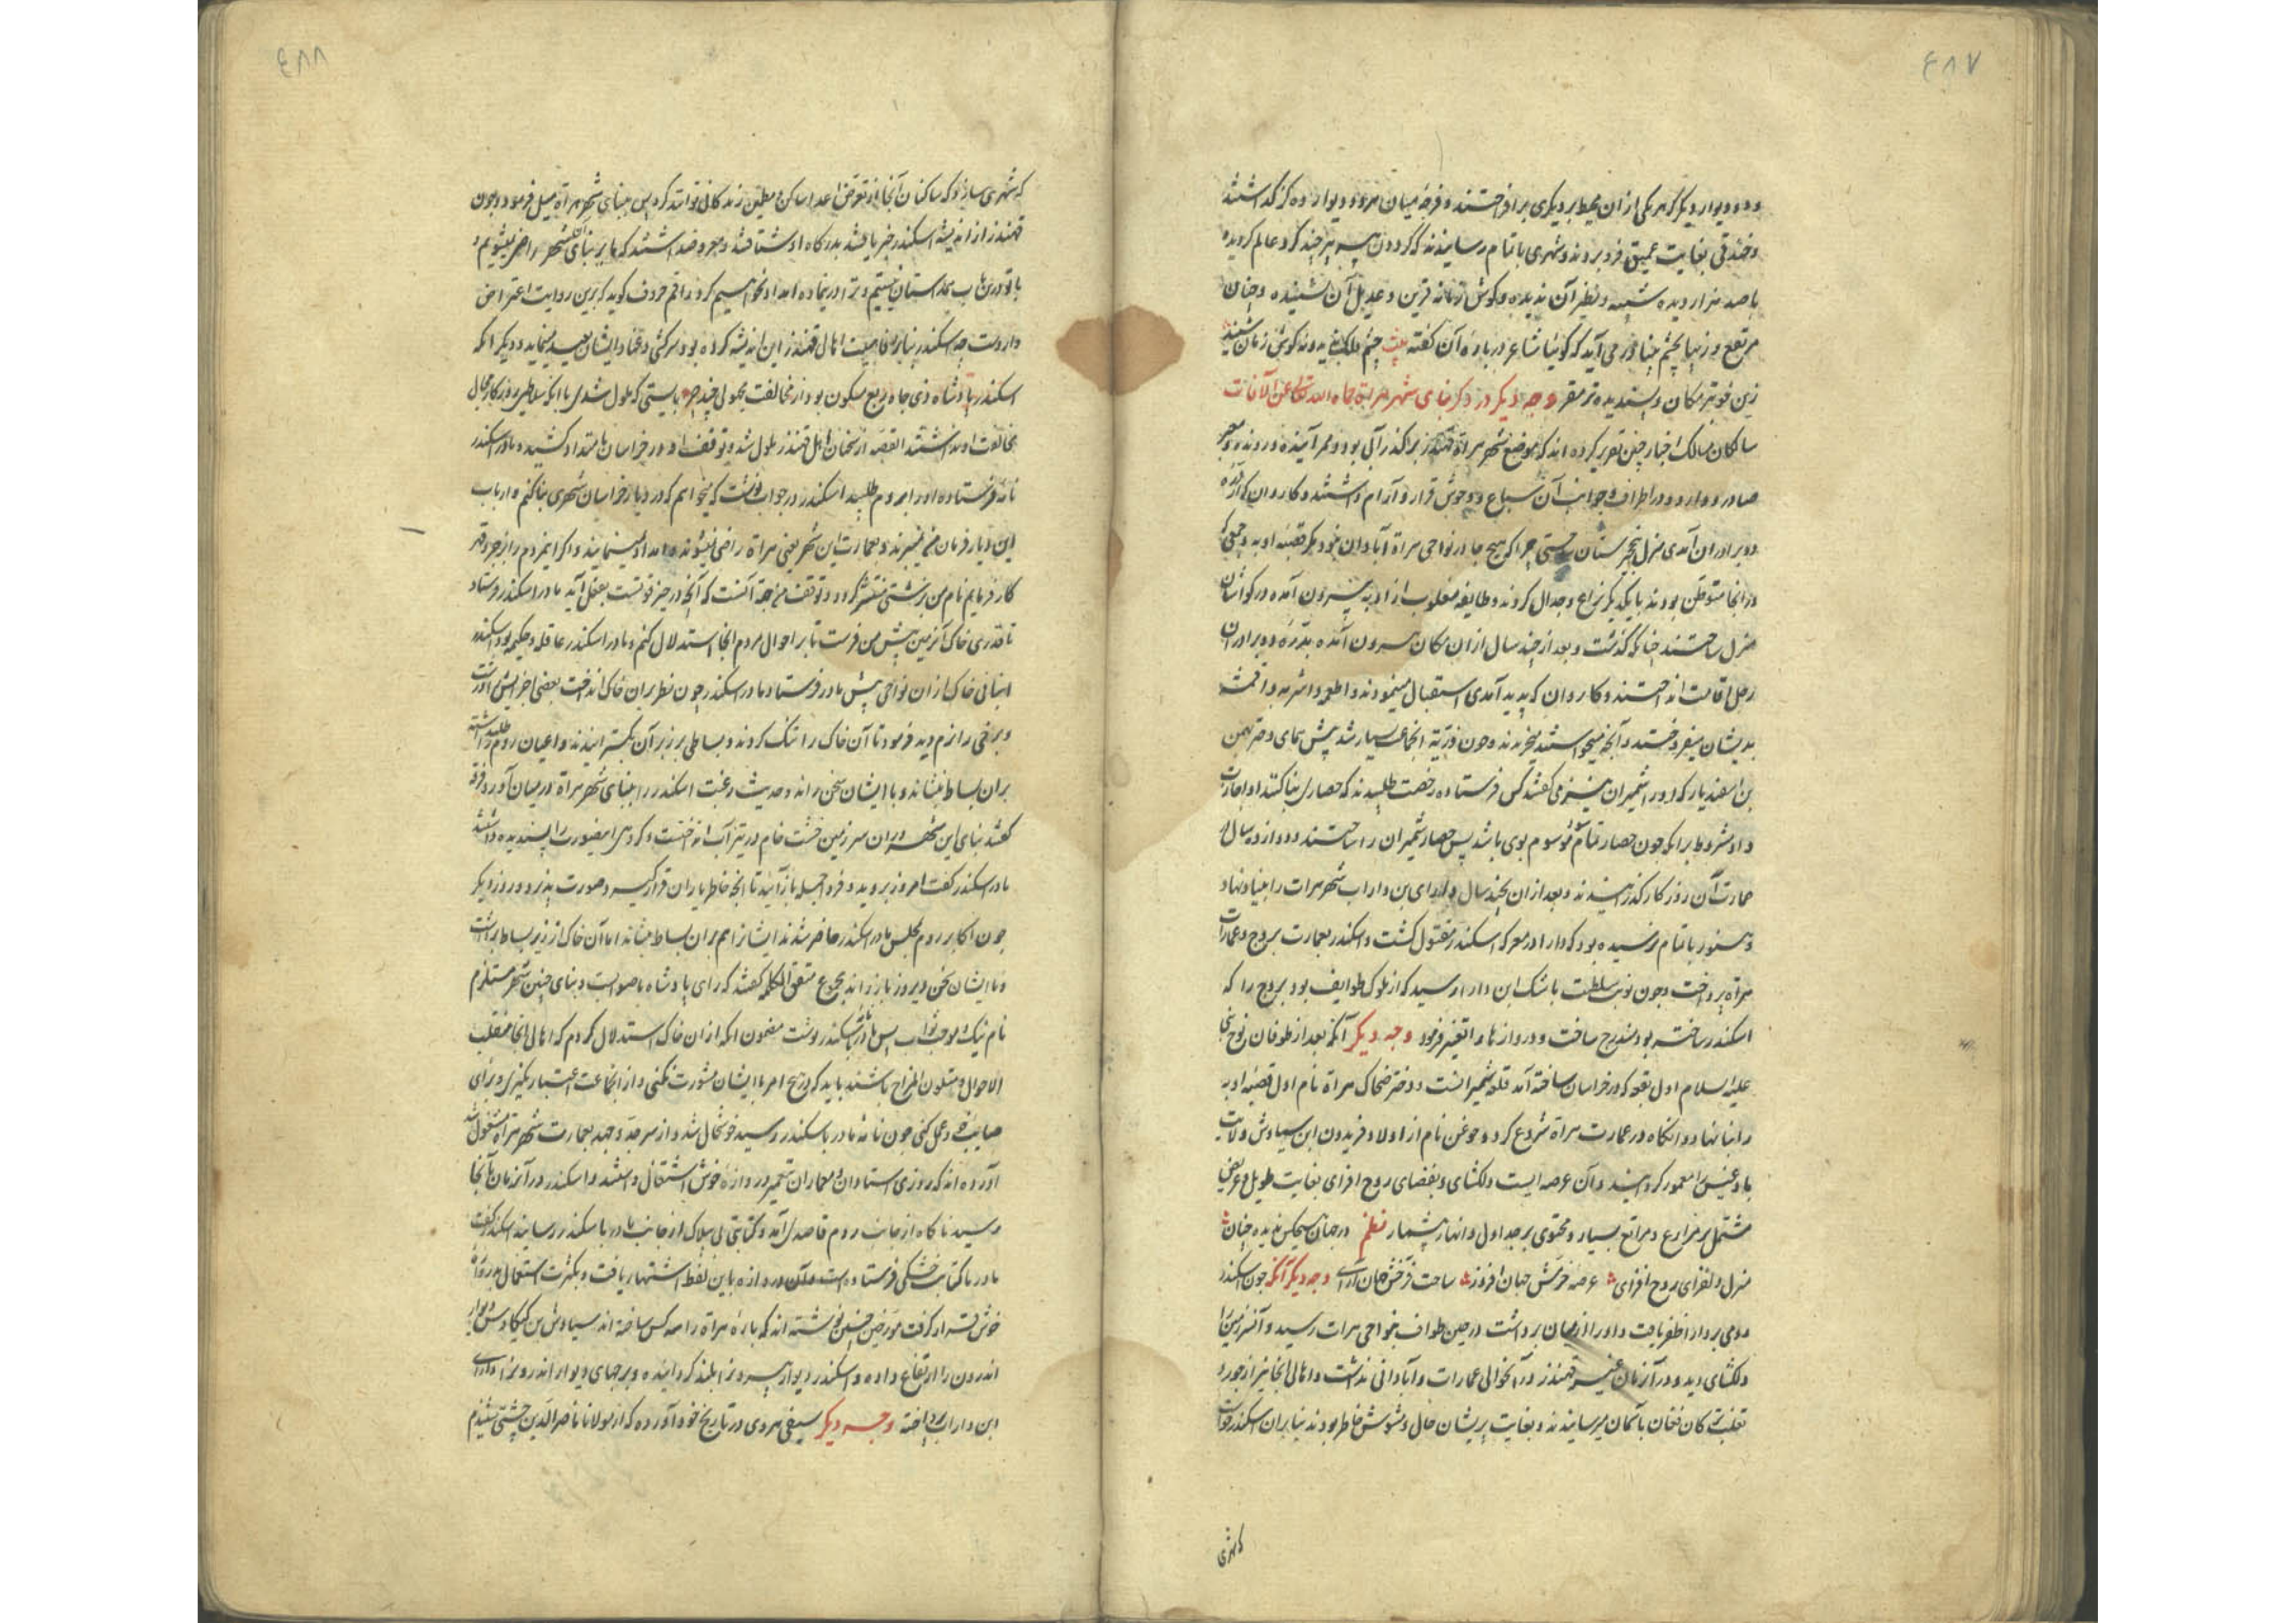 ٤٨٧
و دو دیوار دیگر که هر یکی از آن محیط بر دیگری برافراختند و فرجه میان هر دو دیوار ده گز گذاشتند
و خندقی بغایت عمیق فرو بردند و شهری باتمام رسانیدند که گردون پیر هر چند گرد عالم گردیده
با صد هزار دیده شبیه و نظیر آن ندیده و گوش زمانه قرین و عدیل آن نشنیده و چنان
مرتفع و زیبا بچشم بینا در می آید که گوئیا شاعر در باره آن گفته بیت چشم فلک ندید و نه گوش زمان شنید
زین خوبتر مکان و پسندیده تر مقر وجه دیگر در ذکر بنای شهر هراة حماه الله تعالی عن الآفات
سالکان مسالک اخبار چنین تقریر کرده اند که موضع شهر هراة قهندز بر گذر آبی بود و ممر آینده و رونده و معبر
صادر و وارد و در اطراف و جوانب آن سباع و وحوش قرار و آرام داشتند و کاروان که از
دو برادران آمدی منزل بخیرستان بایستی چرا که هیچ جا در نواحی هراة آبادان نبود مگر قصبه اوبه و جمعی که
در آنجا متوطن بودند با یکدیگر نزاع و جدال کردند و طایفه مغلوب از اوبه بیرون آمده در کواشان
منزل ساختند چنانکه گذشت و بعد از چند سال از آن مکان بیرون آمده بدره دو برادران
رحل اقامت انداختند و کاروان که پدید آمدی استقبال مینمودند و اطعمه و اشربه و اقمشه
بدیشان میفروختند و آنچه میخواستند میخریدند و چون ذریة آنجماعت بسیار شد پیش همای دختر بهمن
بن اسفندیار که او را شمیران نیز می گفتند کس فرستاده رخصت طلبیدند که حصاری بنا کنند او اجازت
داد مشروط برآنکه چون حصار تمام شود موسوم بوی باشد پس حصار شمیران را ساختند و دوازده سال در
عمارت آن روزگار گذرانیدند و بعد از آن بچند سال دارای بن داراب شهر هرات را بنیاد نهاد
و هنوز باتمام نرسیده بود که دارا در معرکه اسکندر مقتول گشت و اسکندر بعمارت بروج و عمارات
هراة پرداخت و چون نوبت سلطنت باشک ابن دارا رسید که از ملوک طوایف بود بروج را که
اسکندر ساخته بود مندرج ساخت و دروازها را تغیر فرمود وجه دیگر آنکه بعد از طوفان نوح نبی
علیه السلام اول بقعه که در خراسان ساخته آمد قلعه شمیرانست و دختر ضحاک هراة نام اول قصبه اوبه
را بنا نهاد و آنگاه در عمارت هراة شروع کرد و جوغن نام از اولاد فریدون ابن سیاوش ولایت
بادغیس را معمور گردانید و آن عرصه ایست دلگشای و بفضای روح افزای بغایت طویل و عریض
مشتمل بر مزارع و مراتع بسیار و محتوی بر جداول و انهار بیشمار نظم در جهان هیچکس ندیده چنان
منزل دلفزای روح افزای عرصه خرمش جهان افروز ساحت فرخش جهان آرای وجه دیگر آنکه چون اسکندر
رومی بر دارا ظفر یافت و او را از میان برداشت در حین طواف بنواحی هرات رسید و آن سرزمین را
دلگشای دید و در آنزمان غیر قهندز در آنحوالی عمارات و آبادانی نداشت و اهالی آنجا نیز از جور و
تغلب ترکان فغان بآسمان میرسانیدند و بغایت پریشان حال و مشوش خاطر بودند بنابر آن اسکندر خواست
که شهری
٤٨٨
که شهری سازد که ساکنان آنجا از تعرض اعدا ساکن و مطمئن زندگانی توانند کرد پس ببنای شهر هراة میل فرمود و چون
قهندز از اندیشه اسکندر خبر یافتند بدرگاه او شتافتند و معروض داشتند که ما بر بنای این شهر راضی نمیشویم و
با تو درین باب همداستان نیستیم و ترا درینماده امداد نخواهیم کرد راقم حروف گوید که برین روایت اعتراض
وارد است چه اسکندر بنابر رفاهیت اهالی قهندز این اندیشه کرده بود سرکشی و عناد ایشان بعید مینماید و دیگر آنکه
اسکندر پادشاه ذی جاه ربع مسکون بود از مخالفت مجهولی چند چرا بایستی که ملول شدی با آنکه سلاطین روزگار مجال
مخالفت او نداشتند القصه از سخنان اهل قهندز ملول شد و توقف او در خراسان بامتداد کشید و مادر اسکندر
نامه فرستاده او را بروم طلبید اسکندر در جواب نوشت که میخواهم که در دیار خراسان شهری بنا کنم و ارباب
این دیار فرمان من نمیبرند و بعمارت این شهر یعنی هراة راضی نمیشوند و امداد نمینمایند و اگر این مردم را بزجر و قهر
کار فرمایم نام من بزشتی منتشر گردد و توقف من جهة آنست که آنچه در حیز قوتست بفعل آید مادر اسکندر فرستاد
تا قدری خاک آنزمین پیش من فرست تا بر احوال مردم آنجا استدلال کنم و مادر اسکندر عاقله و حکیمه بود اسکندر
انبانی خاک از آن نواحی پیش مادر فرستاد مادر اسکندر چون نظر بر آن خاک انداخت بعضی اجزایش درشت
و برخی را نرم دید فرمود تا آن خاک را تنک کردند و بساطی بر زبر آن بگسترانیدند و اعیان روم را طلب داشته
بر آن بساط بنشاند و با ایشان سخن راند و حدیث رغبت اسکندر را ببنای شهر هراة در میان آورد فرقه
گفتند بنای این شهر در آن سرزمین خشت خام در تیز آب انداختست و گروهی اینصورت را پسندیده داشتند
مادر اسکندر گفت امروز بروید و فردا جمله باز آئید تا آنچه خاطر یاران قرار گیرد صورت پذیرد و روز دیگر
چون اکابر روم بمجلس مادر اسکندر حاضر شدند ایشانرا هم بر آن بساط بنشاند اما آن خاک از زیر بساط برداشت
و با ایشان سخن دیروز باز راند مجموع متفق الکلمه گفتند که رای پادشاه با صوابست و بنای چنین شهر مستلزم
نام نیک و موجب ثواب پس مادر باسکندر نوشت مضمون آنکه از آن خاک استدلال کردم که اهالی آنجا منقلب
الاحوال و متلون المزاج باشند باید که در هیچ امر با ایشان مشورت نکنی و از آنجماعت اعتبار نگیری و برای
صایب خود عمل کنی چون نامه مادر باسکندر رسید خوشحال شد و از سر جد و جهد بعمارت شهر هراة مشغول شد
آورده اند که روزی استادان و معماران بتعمیر دروازه خوش اشتغال داشتند و اسکندر در آنزمان بآنجا
رسید ناگاه از جانب روم قاصدی آمد و کتابتی بی پلاک از جانب مادر باسکندر رسانید اسکندر گفت
مادر ما کتاب خشکی فرستاده است و آن دروازه باین لفظ اشتهار یافت و بکثرت استعمال بدروازه
خوش قرار گرفت مورخین چنین نوشته اند که باره هراة را سه کس ساخته اند سیاوش بن کیکاوس دیوار
اندرون را ارتفاع داده و اسکندر دیوار بیرون را بلند گردانیده و برجهای دیوار اندرون را دارای
ابن داراب پرداخته وجه دیگر سیفی هروی در تاریخ خود آورده که از مولانا ناصر الدین چشتی شنیدم